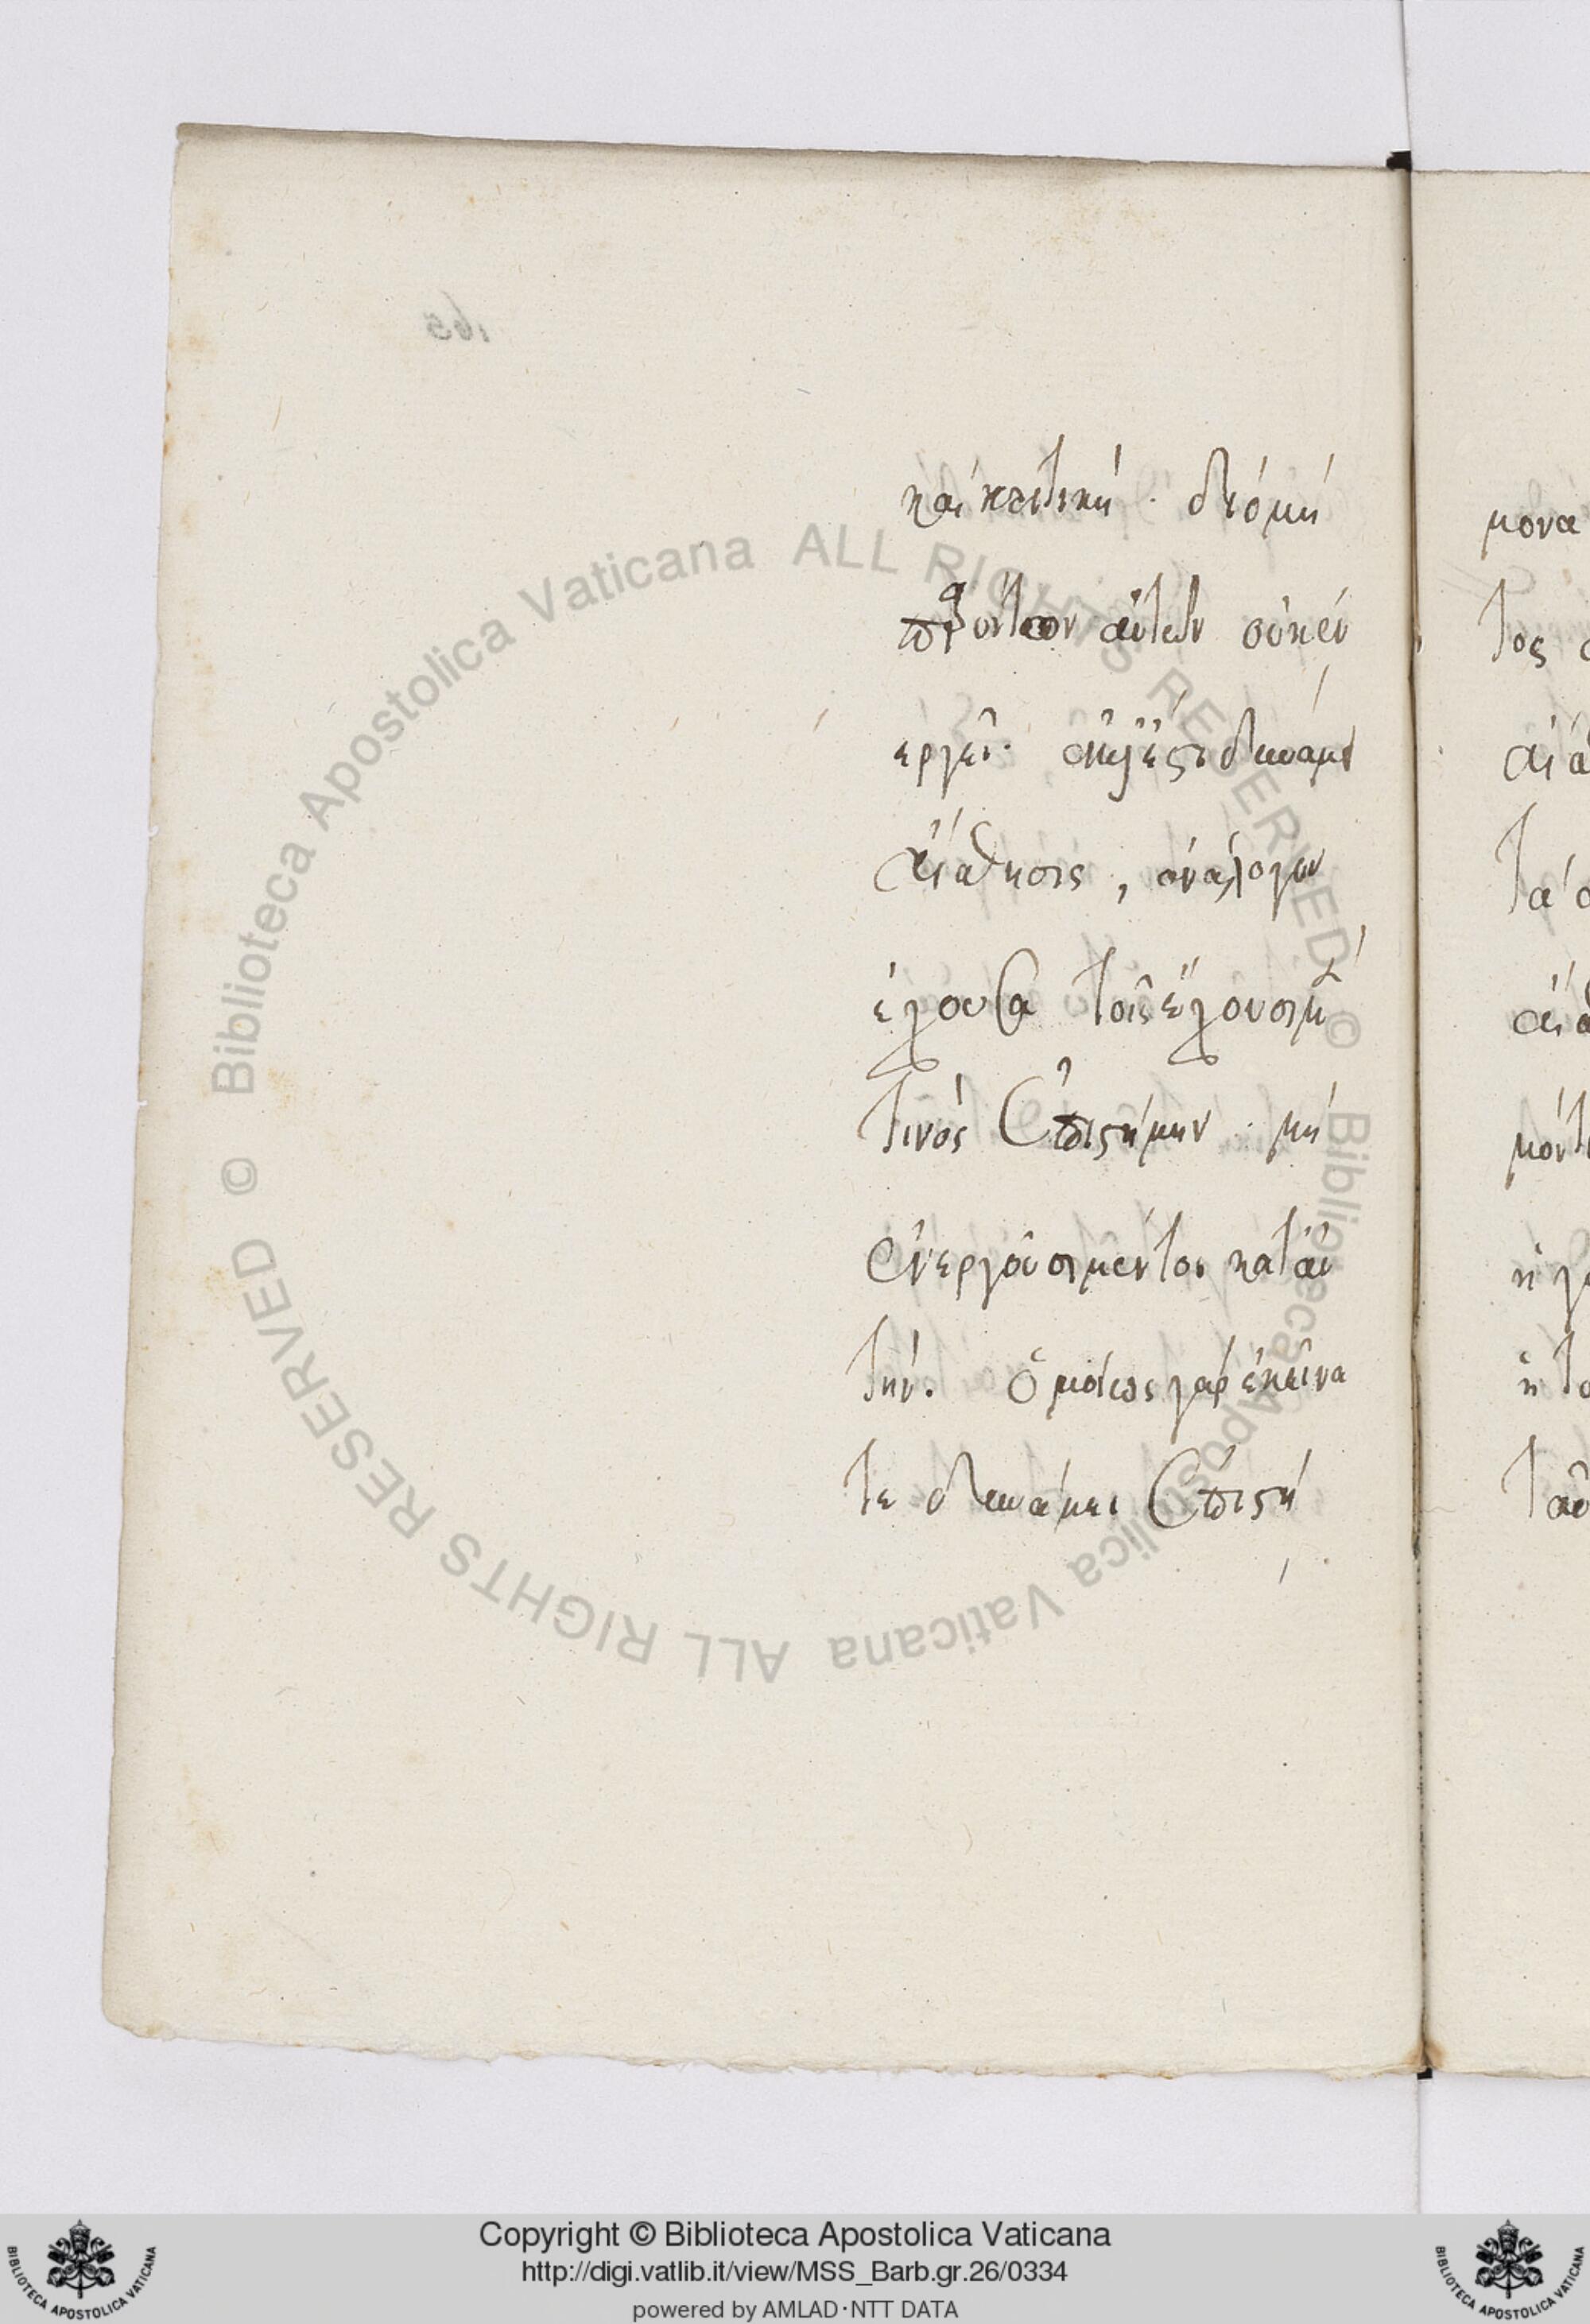 καὶ κριτικὴ · διὸ μὴ
παρόντων αὐτῶν οὐκ ἐν
εργεῖ· ἀλλ' ἔστι δυνάμει
αἴσθησις, ἀνάλογον
ἔχουσα τοῖς ἔχουσι μέ
τινος ἐπιστήμην · μὴ
ἐνεργοῦσι μέντοι κατ' αὐ
τήν. ὁμοίως γὰρ ἐκεῖνα
τε δυνάμει ἐπιστή
μονα
τος
ται
ἢ το
165
© Biblioteca Apostolica Vaticana ALL RIGHTS RESERVED © Biblioteca Apostolica Vaticana ALL RIGHTS RESERVED
BIBLIOTECA APOSTOLICA VATICANA
Copyright © Biblioteca Apostolica Vaticana
http://digi.vatlib.it/view/MSS_Barb.gr.26/0334
powered by AMLAD·NTT DATA
BIBLIOTECA APOSTOLICA VATICANA